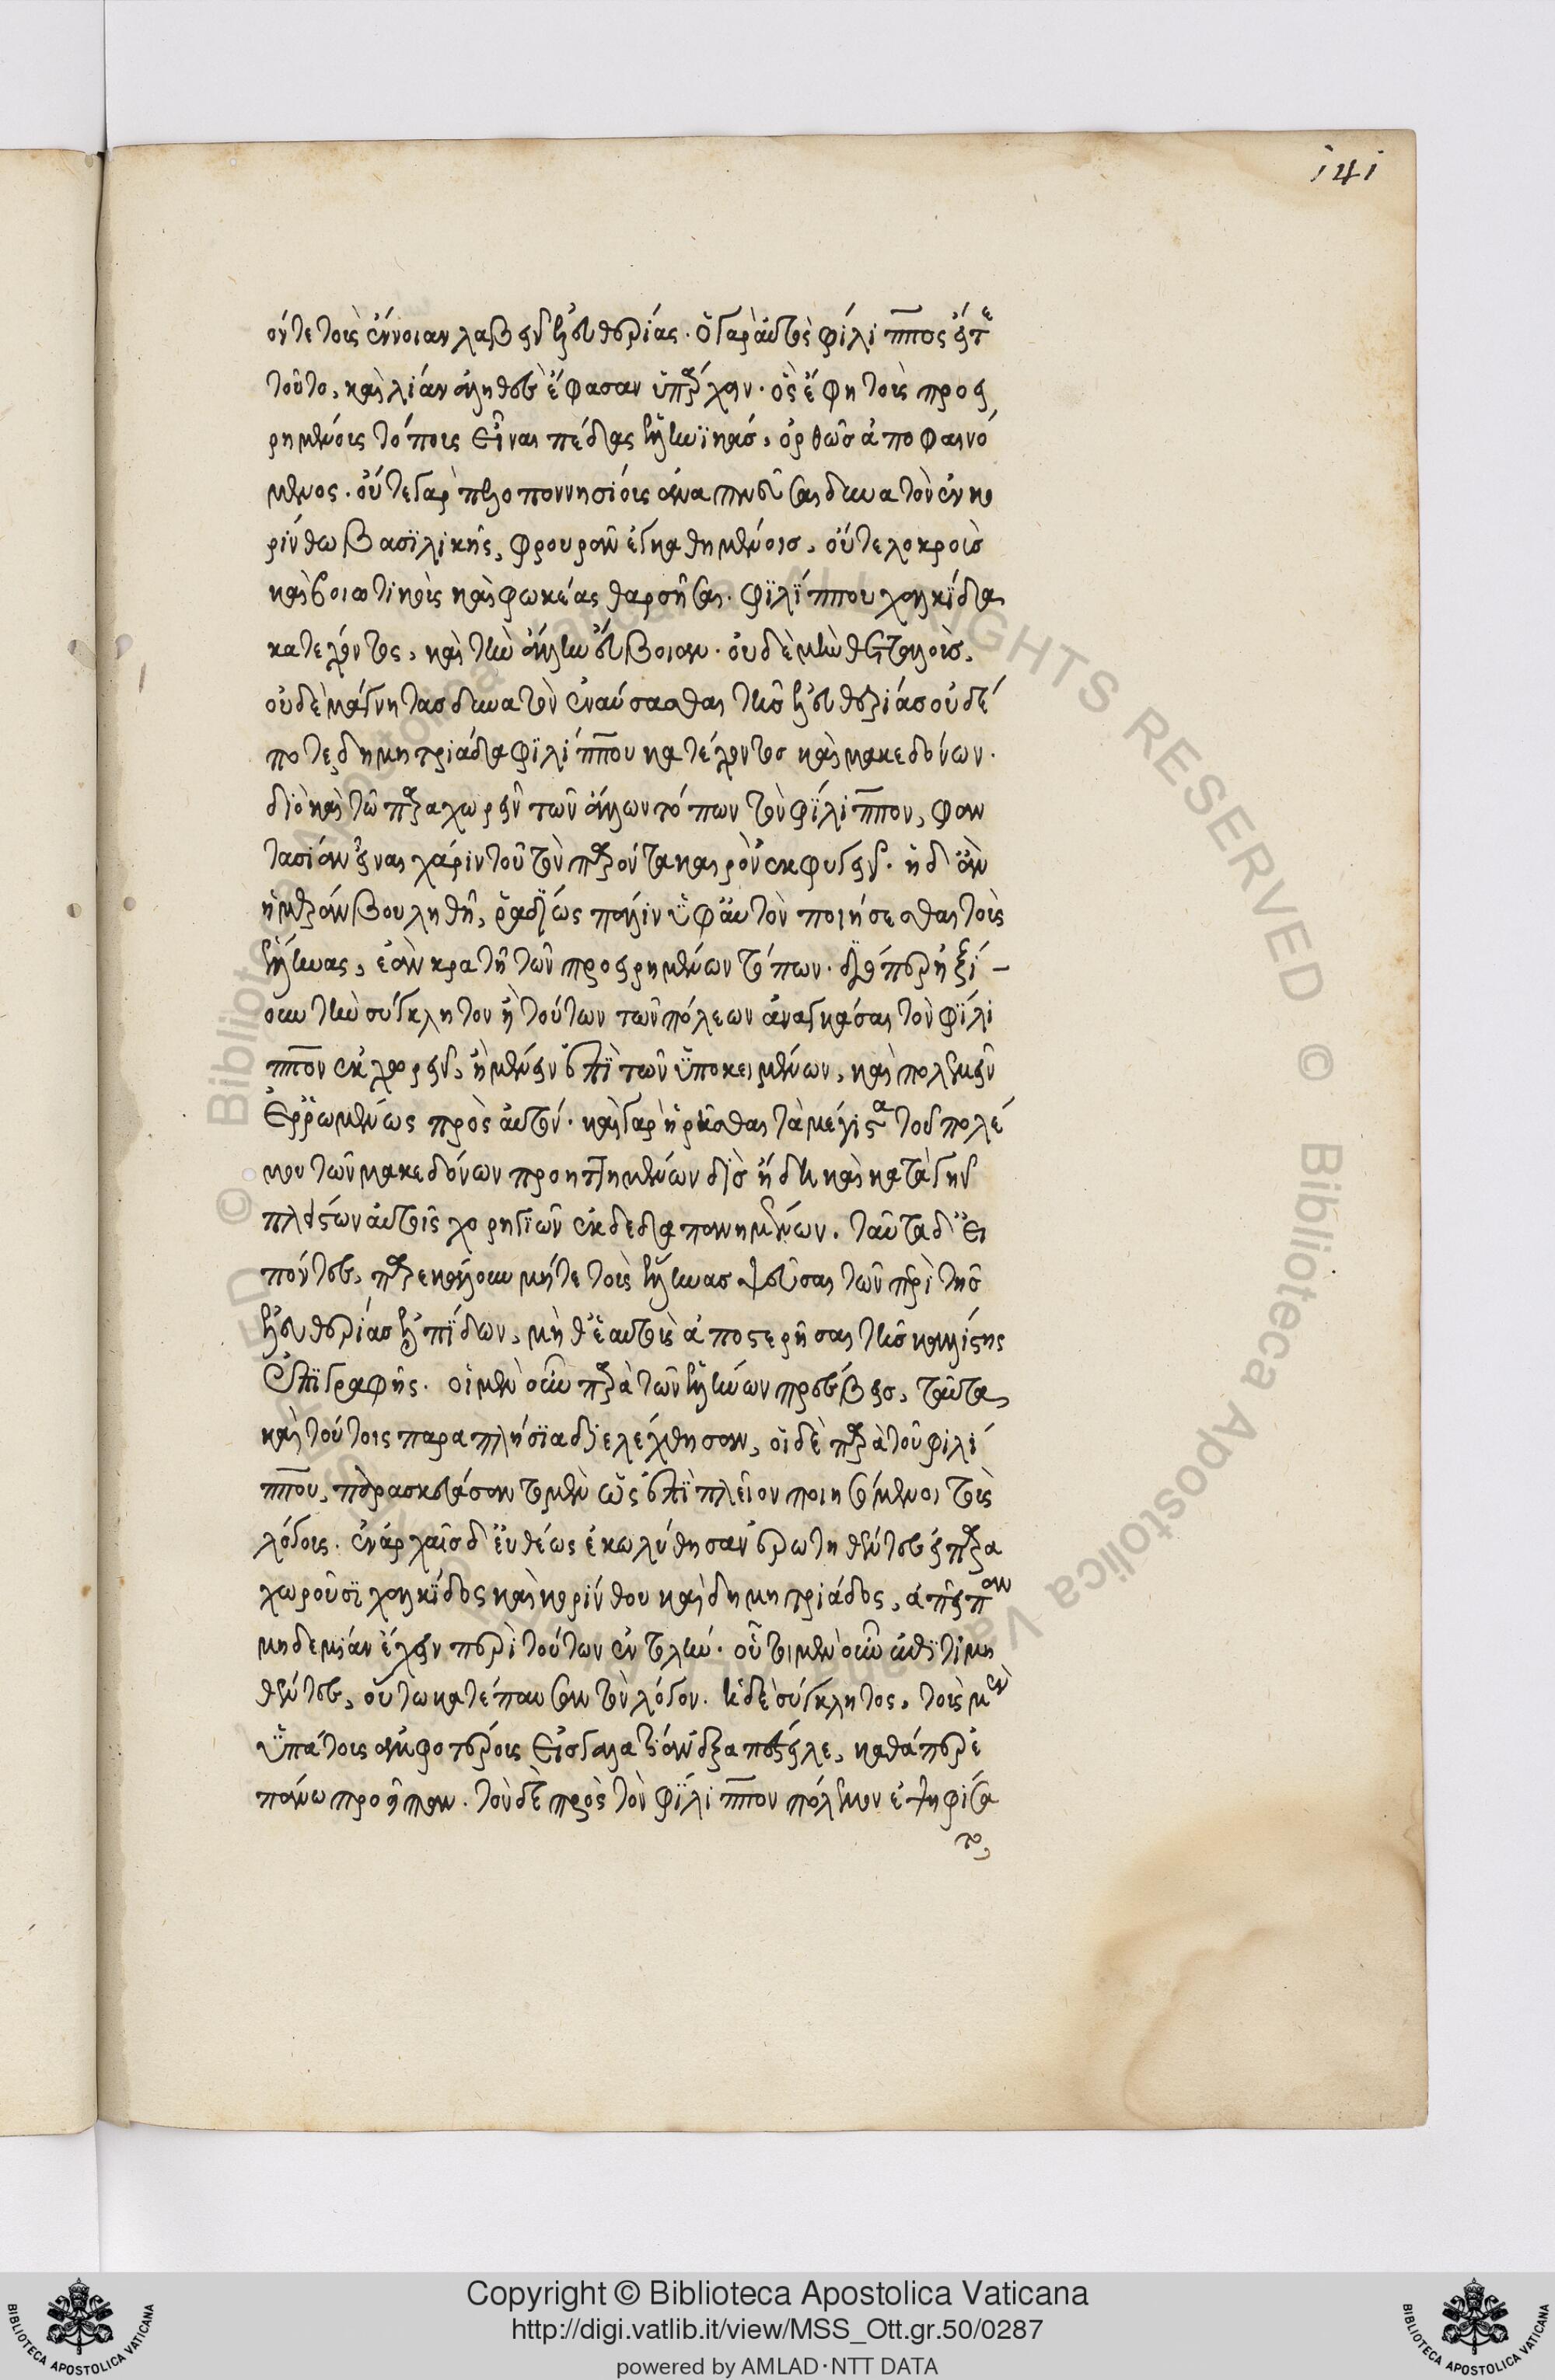 141
όντε τοὺς ἔννοιαν λαβεῖν ἐλευθερίας. ὁ γὰρ αὐτὸς φίλιππος εἶπε
τοῦτο, καὶ λίαν ἀληθὲς ἔφασαν ὑπάρχειν. ὃς ἔφη τοὺς προει
ρημένους τόπους εἶναι πέδας ἑλληνικάς, ὀρθῶς ἀποφαινό
μενος. οὔτε γὰρ πελοποννησίους ἀναπνεῦσαι δυνατὸν ἐν κο
ρίνθω βασιλικῆς φρουρᾶς ἐγκαθημένης, οὔτε λοκροὺς
καὶ βοιωτοὺς καὶ φωκέας θαρσῆσαι. φιλίππου χαλκίδα
κατέχοντος, καὶ τὴν ἄλλην εὔβοιαν. οὐδὲ μὴν θετταλοὺς,
οὐδὲ μάγνητας δυνατὸν ἐναύσασθαι τῆς ἐλευθερίας οὐδέ
ποτε δημητριάδα φιλίππου κατέχοντος καὶ μακεδόνων.
διὸ καὶ τὸ παραχωρεῖν τῶν ἄλλων τόπων τὸν φίλιππον, φαν
τασίαν εἶναι χάριν τοῦ τὸν παρόντα καιρὸν ἐκφυγεῖν. ἡ δ' ἂν
ἡμέραν βουληθῆ, ῥαδίως πάλιν ὑφ' αὑτὸν ποιήσεσθαι τοὺς
ἕλληνας, ἐὰν κρατῆ τῶν προειρημένων τόπων. διόπερ ἠξί-
ουν τὴν σύγκλητον ἢ τούτων τῶν πόλεων ἀναγκάσαι τὸν φίλι
ππον ἐκχωρεῖν, ἢ μένειν ἐπὶ τῶν ὑποκειμένων, καὶ πολεμεῖν
ἐρρωμένως πρὸς αὐτόν. καὶ γὰρ ἠρκέσθαι τὰ μέγιστα τοῦ πολέ
μου τῶν μακεδόνων προηττημένων δὶς ἤδη καὶ κατὰ γῆν
πλείστων αὐτοῖς χορηγιῶν ἐκδεδαπανημένων. ταῦτα δ' εἰ
πόντες, παρεκάλουν μήτε τοὺς ἕλληνας ψεῦσαι τῶν περὶ τῆς
ἐλευθερίας ἐλπίδων, μήθ' ἑαυτοὺς ἀποστερῆσαι τῆς καλλίστης
ἐπιγραφῆς. οἱ μὲν οὖν παρὰ τῶν ἑλλήνων πρέσβεις, ταῦτα
καὶ τούτοις παραπλήσια διελέχθησαν, οἱ δὲ παρὰ τοῦ φιλί
ππου, παρασκευάσαντο μὲν ὡς ἐπὶ πλεῖον ποιησόμενοι τοὺς
λόγους. ἐν ἀρχαῖς δ' εὐθέως ἐκωλύθησαν ἐρωτηθέντες εἰ παρα
χωροῦσι χαλκίδος καὶ κορίνθου καὶ δημητριάδος, ἀπεῖπαν
μηδεμίαν ἔχειν περὶ τούτων ἐντολήν. οὗτοι μὲν οὖν ἐπιτιμη
θέντες, οὕτω κατέπαυσαν τὸν λόγον. ἡ δὲ σύγκλητος, τοὺς μὲν
ὑπάτους ἀμφοτέρους εἰς γαλατίαν ἐξαπέστειλε, καθάπερ ἐ
πάνω προεῖπον. τὸν δὲ πρὸς τὸν φίλιππον πόλεμον ἐψηφίσα
το,
Copyright © Biblioteca Apostolica Vaticana
http://digi.vatlib.it/view/MSS_Ott.gr.50/0287
powered by AMLAD·NTT DATA